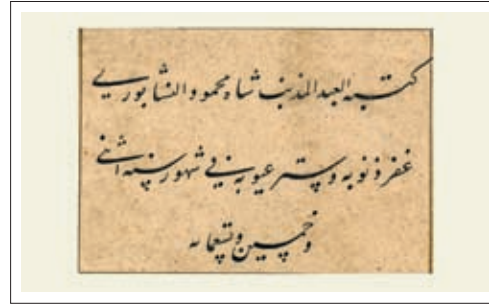 کتبه العبد المذنب شاه محمود النشابوری
غفر ذنوبه و ستر عیوبه فی شهور سنه اثنی
و خمسین و تسعمائه